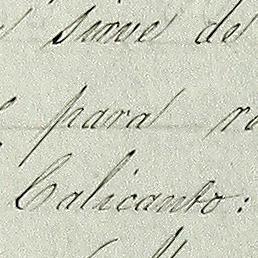 sirve de
para
Calicanto: